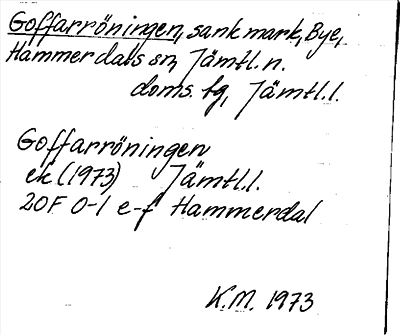 Goffarröningen, sank mark, Bye,
Hammerdals sn, Jämtl. n.
doms. fg, Jämtl. l.
Goffarröningen
ek (1973) Jämtl. l.
20F 0-1 e-f Hammerdal
K.M. 1973